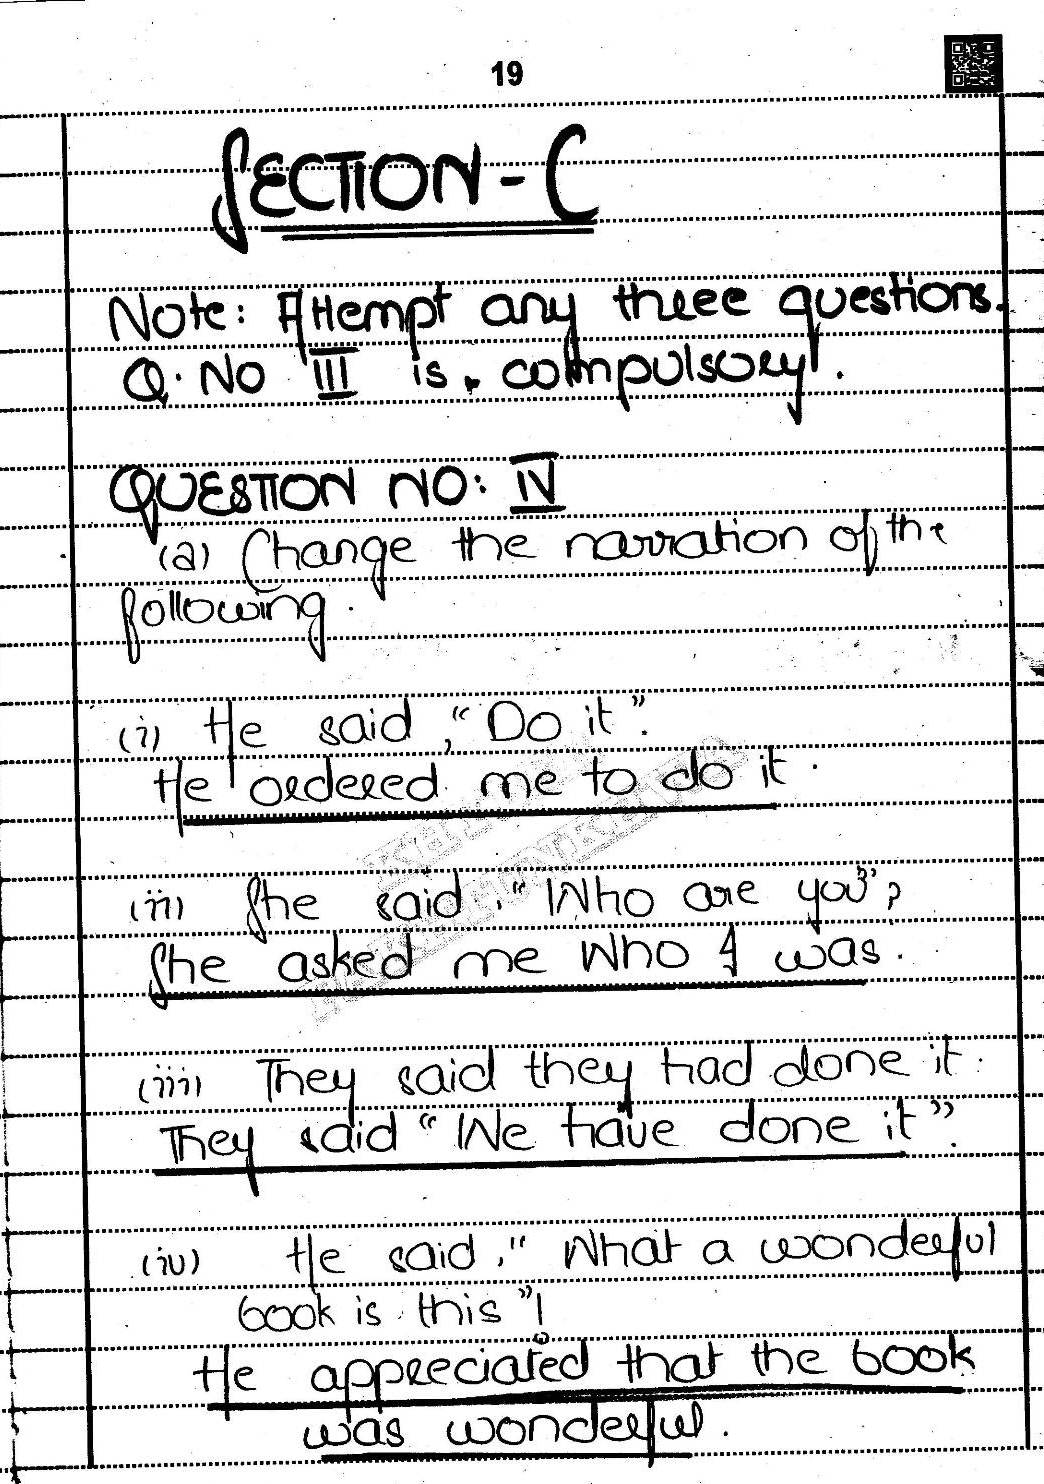 19
SECTION - C
Note: Attempt any three questions.
Q. No III is compulsory.
QUESTION NO: IV
(a) Change the narration of the
following.
(i) He said, "Do it".
He ordered me to do it.
(ii) She said, "Who are you"?
She asked me who I was.
(iii) They said they had done it.
They said "We have done it".
(iv) He said, "What a wonderful
book is this"!
He appreciated that the book
was wonderful.